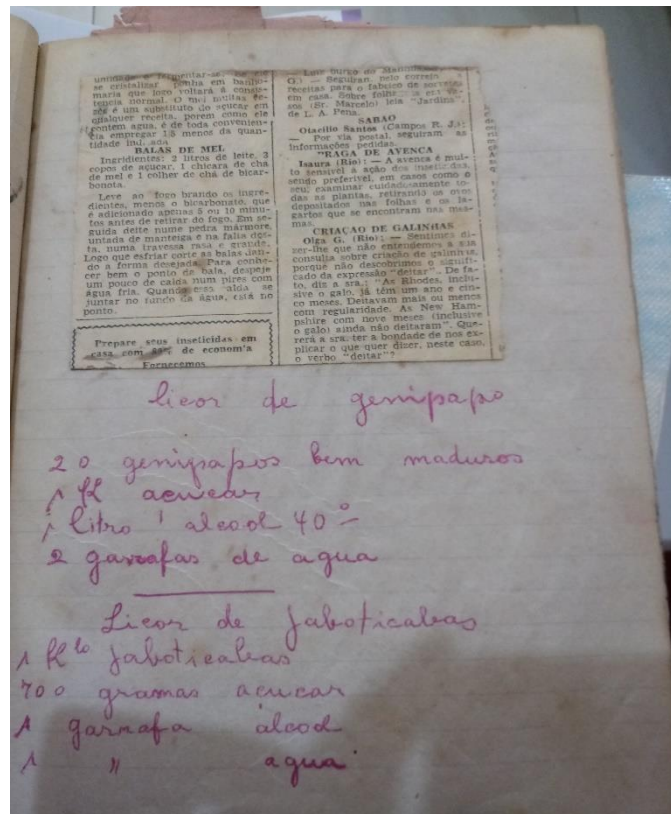 untada e fermentar-se, se ele
se cristalizar ponha em banho-
maria que logo voltará à consis-
tencia normal. O mel muitas ve-
zes é um substituto do açucar em
qualquer receita, porem como ele
contem agua, é de toda convenien-
cia empregar 1,5 menos da quan-
tidade indicada
BALAS DE MEL
Ingredientes: 2 litros de leite, 3
copos de açucar, 1 chicara de chá
de mel e 1 colher de chá de bicar-
bonota.
Leve ao fogo brando os ingre-
dientes, menos o bicarbonato, que
é adicionado apenas 5 ou 10 minu-
tos antes de retirar do fogo. Em se-
guida deite nume pedra mármore
untada de manteiga e na falta des-
ta, numa travessa rasa e grande.
Logo que esfriar corte as balas dan-
do a forma desejada. Para conhe-
cer bem o ponto de bala, despeje
um pouco de calda num pires com
água fria. Quando essa alda se
juntar no fundo da água, está no
ponto.
Prepare seus inseticidas em
casa com de economia
Fornecemos
G.) — Seguiran, pelo correio
receitas para o fabuco de sorvetes
em casa. Sobre folha
(Sr. Marcelo) leia "Jardins",
de L. A. Pena.
SABÃO
Otacilio Santos (Campos R. J.):
— Por via postal, seguiram as
informações pedidas.
PRAGA DE AVENCA
Isaura (Rio): — A avenca é mui-
to sensivel à ação dos inseticidas,
sendo preferivel, em casos como o
seu, examinar cuidadosamente to-
das as plantas, retirando os ovos
depositados nas folhas e os la-
gartos que se encontram nas mes-
mas.
CRIAÇÃO DE GALINHAS
Olga G. (Rio): — Sentimos di-
zer-lhe que não entendemos a sua
consulta sobre criação de galinhas,
porque não descobrimos o signifi-
cado da expressão "deitar". De fa-
to, diz a sra.: "As Rhodes, inclu-
sive o galo, já têm um ano e cin-
co meses. Deitavam mais ou menos
com regularidade. As New Ham-
pshire com nove meses (inclusive
o galo) ainda não deitaram". Que-
rerá a sra. ter a bondade de nos ex-
plicar o que quer dizer, neste caso,
o verbo "deitar"?
licor de genipapo
20 genipapos bem maduros
1 K açucar
1 litro alcool 40º
2 garrafas de agua
Licor de Jaboticabas
1 Klo jaboticabas
700 gramas açucar
1 garrafa álcool
1 " agua